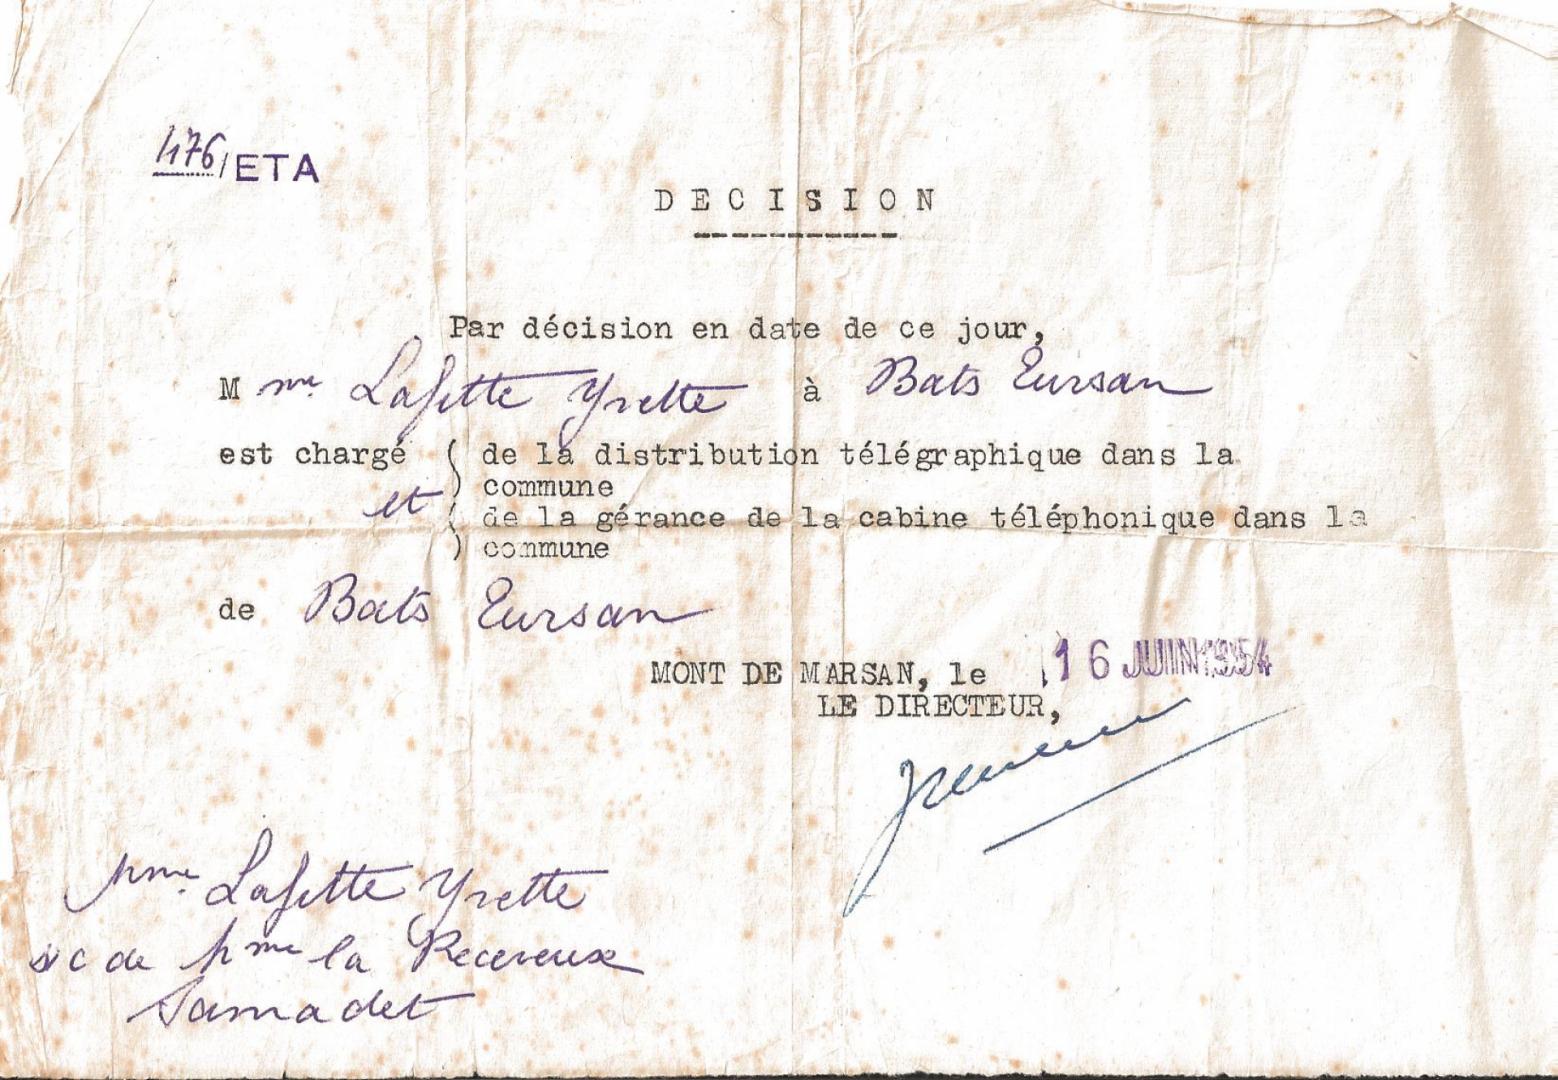 1176/ETA
DECISION
Par décision en date de ce jour,
Mme Lafitte Yvette à Bats Tursan
est chargé ( de la distribution télégraphique dans la
) commune
et ( de la gérance de la cabine téléphonique dans la
) commune
de Bats Tursan
MONT DE MARSAN, le 16 JUIN 1954
LE DIRECTEUR,
Mme Lafitte Yvette
s c de Mme la Receveuse
Samadet